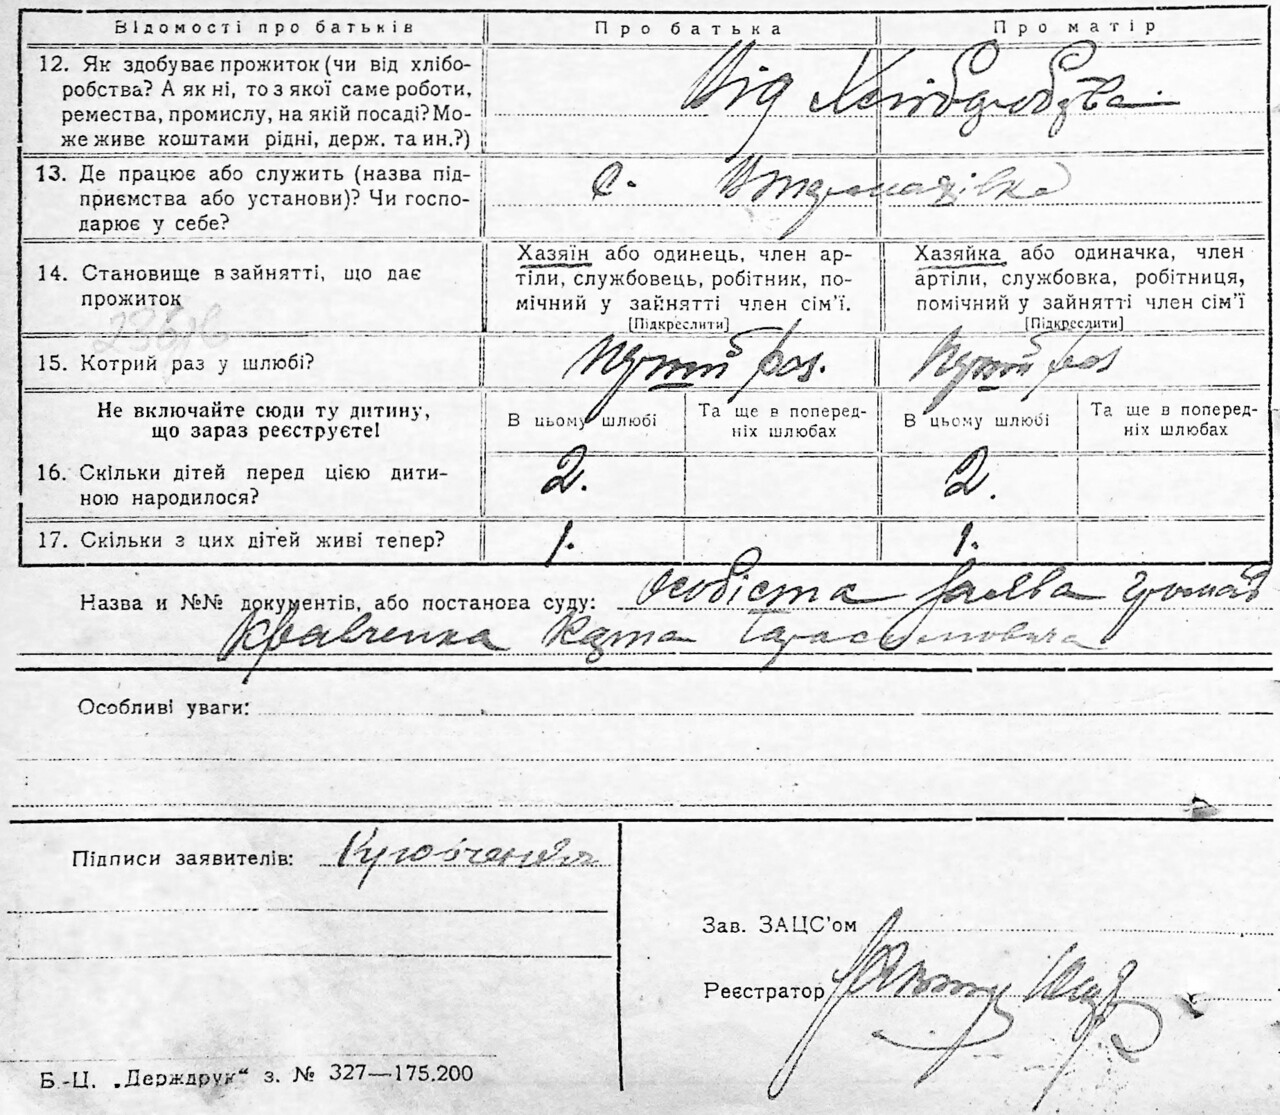 Відомості про батьків
Про батька
Про матір
12. Як здобуває прожиток (чи від хлібо-
робства? А як ні, то з якої саме роботи,
ремества, промислу, на якій посаді? Мо-
же живе коштами рідні, держ. та ин.?)
Від Хліборобства
13. Де працює або служить (назва під-
приємства або установи)? Чи госпо-
дарює у себе?
с.
14. Становище в зайнятті, що дає
прожиток
Хазяїн або одинець, член ар-
тіли, службовець, робітник, по-
мічний у зайнятті член сім’ї.
[Підкреслити]
Хазяйка або одиначка, член
артіли, службовка, робітниця,
помічний у зайнятті член сім’ї
[Підкреслити]
15. Котрий раз у шлюбі?
Перший раз.
Перший раз
Не включайте сюди ту дитину,
що зараз реєструєте!
В цьому шлюбі
Та ще в поперед-
ніх шлюбах
В цьому шлюбі
Та ще в поперед-
ніх шлюбах
16. Скільки дітей перед цією дити-
ною народилося?
2.
2.
17. Скільки з цих дітей живі тепер?
1.
1.
Назва и №№ документів, або постанова суду: особіста заява громад
Кравченка
Особливі уваги:
Підписи заявителів:
Зав. ЗАЦС’ом
Реєстратор
Б.-Ц. „Держдрук“ з. № 327—175.200